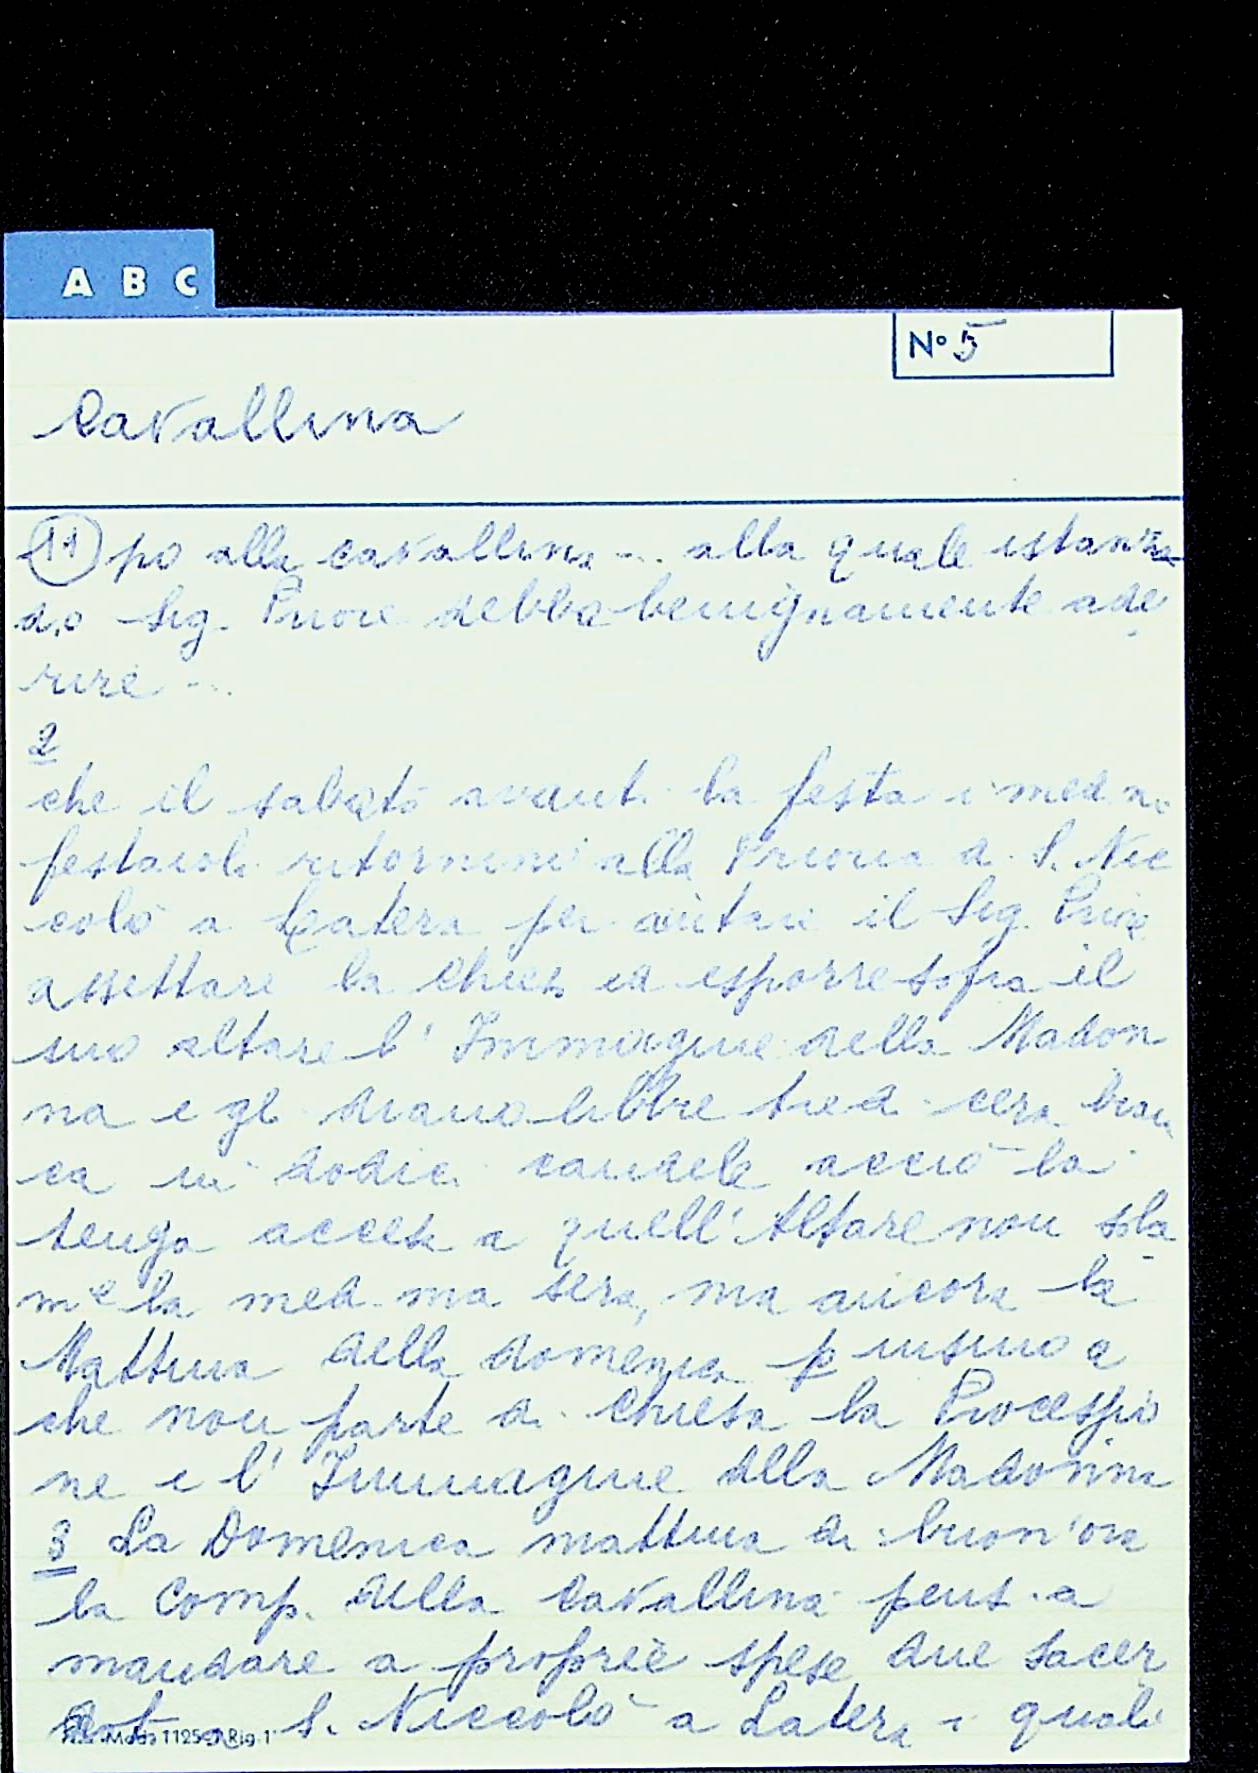 A B C
N° 5
Cavallina
11 po alla cavallina ... alla quale istanza
d.o Sig. Priore debba benignamente ade
rire ...
2
che il sabato avanti la festa i med.mi
festaioli ritornino alla Prioria di S. Nic
colò a Latera per aiutare il Sig. Priore
assettare la chiesa ed esporre sopra il
suo altare l' Immagine della Madon
na e gli diano libbre tre di cera bian
ca in dodici candele acciò la
tenga accesa a quell' Altare non sola
m.e la med.ma sera, ma ancora la
Mattina della domenica p insino a
che non parte di chiesa la Processio
ne e l' Immagine della Madonna
3 La Domenica mattina di buon'ora
la Comp. della Cavallina pensi a
mandare a proprie spese due sacer
doti a S. Niccolò a Latera i quali
Mod. 1125 Rig. 1